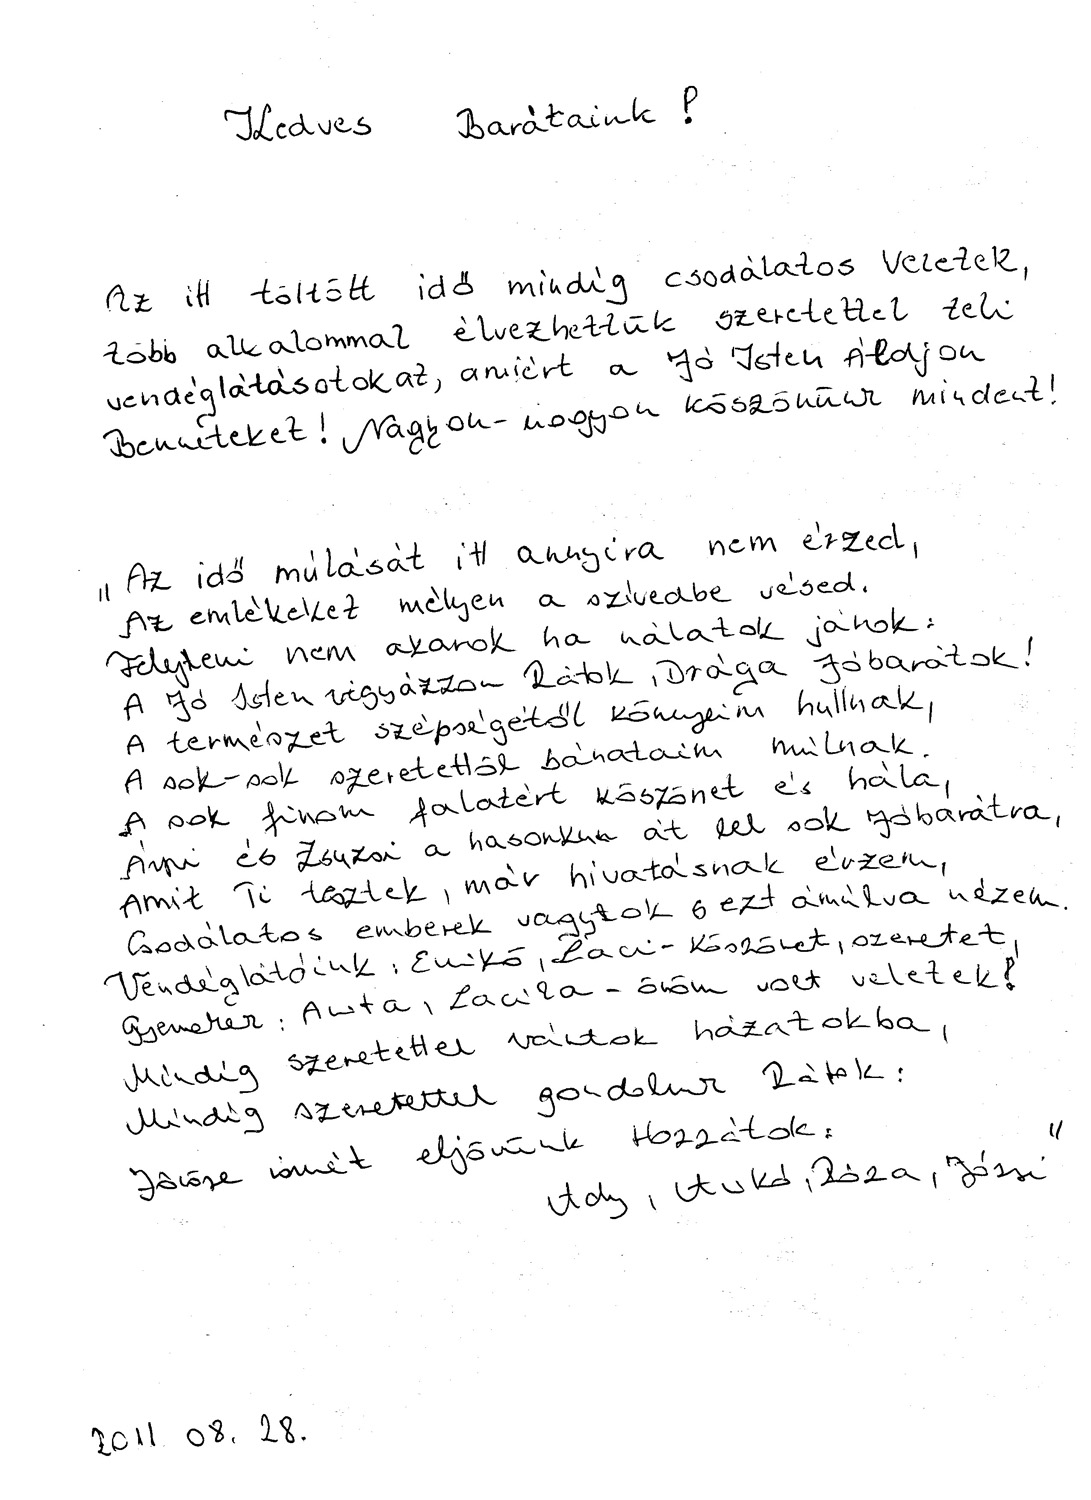 Kedves Barátaink!
Az itt töltött idő mindig csodálatos Veletek,
több alkalommal élvezhettük szeretettel teli
vendéglátásotokat, amiért a Jó Isten Áldjon
Benneteket! Nagyon-nagyon köszönünk mindent!
"Az idő múlását itt annyira nem érzed,
Az emlékeket mélyen a szívedbe vésed.
Felejteni nem akarok ha nálatok járok:
A Jó Isten vigyázzon Rátok, Drága Jóbarátok!
A természet szépségétől könnyeim hullnak,
A sok-sok szeretettől bánataim múlnak.
A sok finom falatért köszönet és hála,
Árpi és Zsuzsi a hasonkun át lel sok jóbarátra,
Amit Ti tesztek, már hivatásnak érzem,
Csodálatos emberek vagytok s ezt ámúlva nézem.
Vendéglátóink: Enikő, Laci - köszönet, szeretet,
Gyemekek: Anita, Lacika - öröm volt veletek!
Mindig szeretettel vártok házatokba,
Mindig szeretettel gondolunk Rátok:
Jövőre ismét eljövünk Hozzátok:
Ady, Anikó, Róza, Józsi"
2011 08. 28.